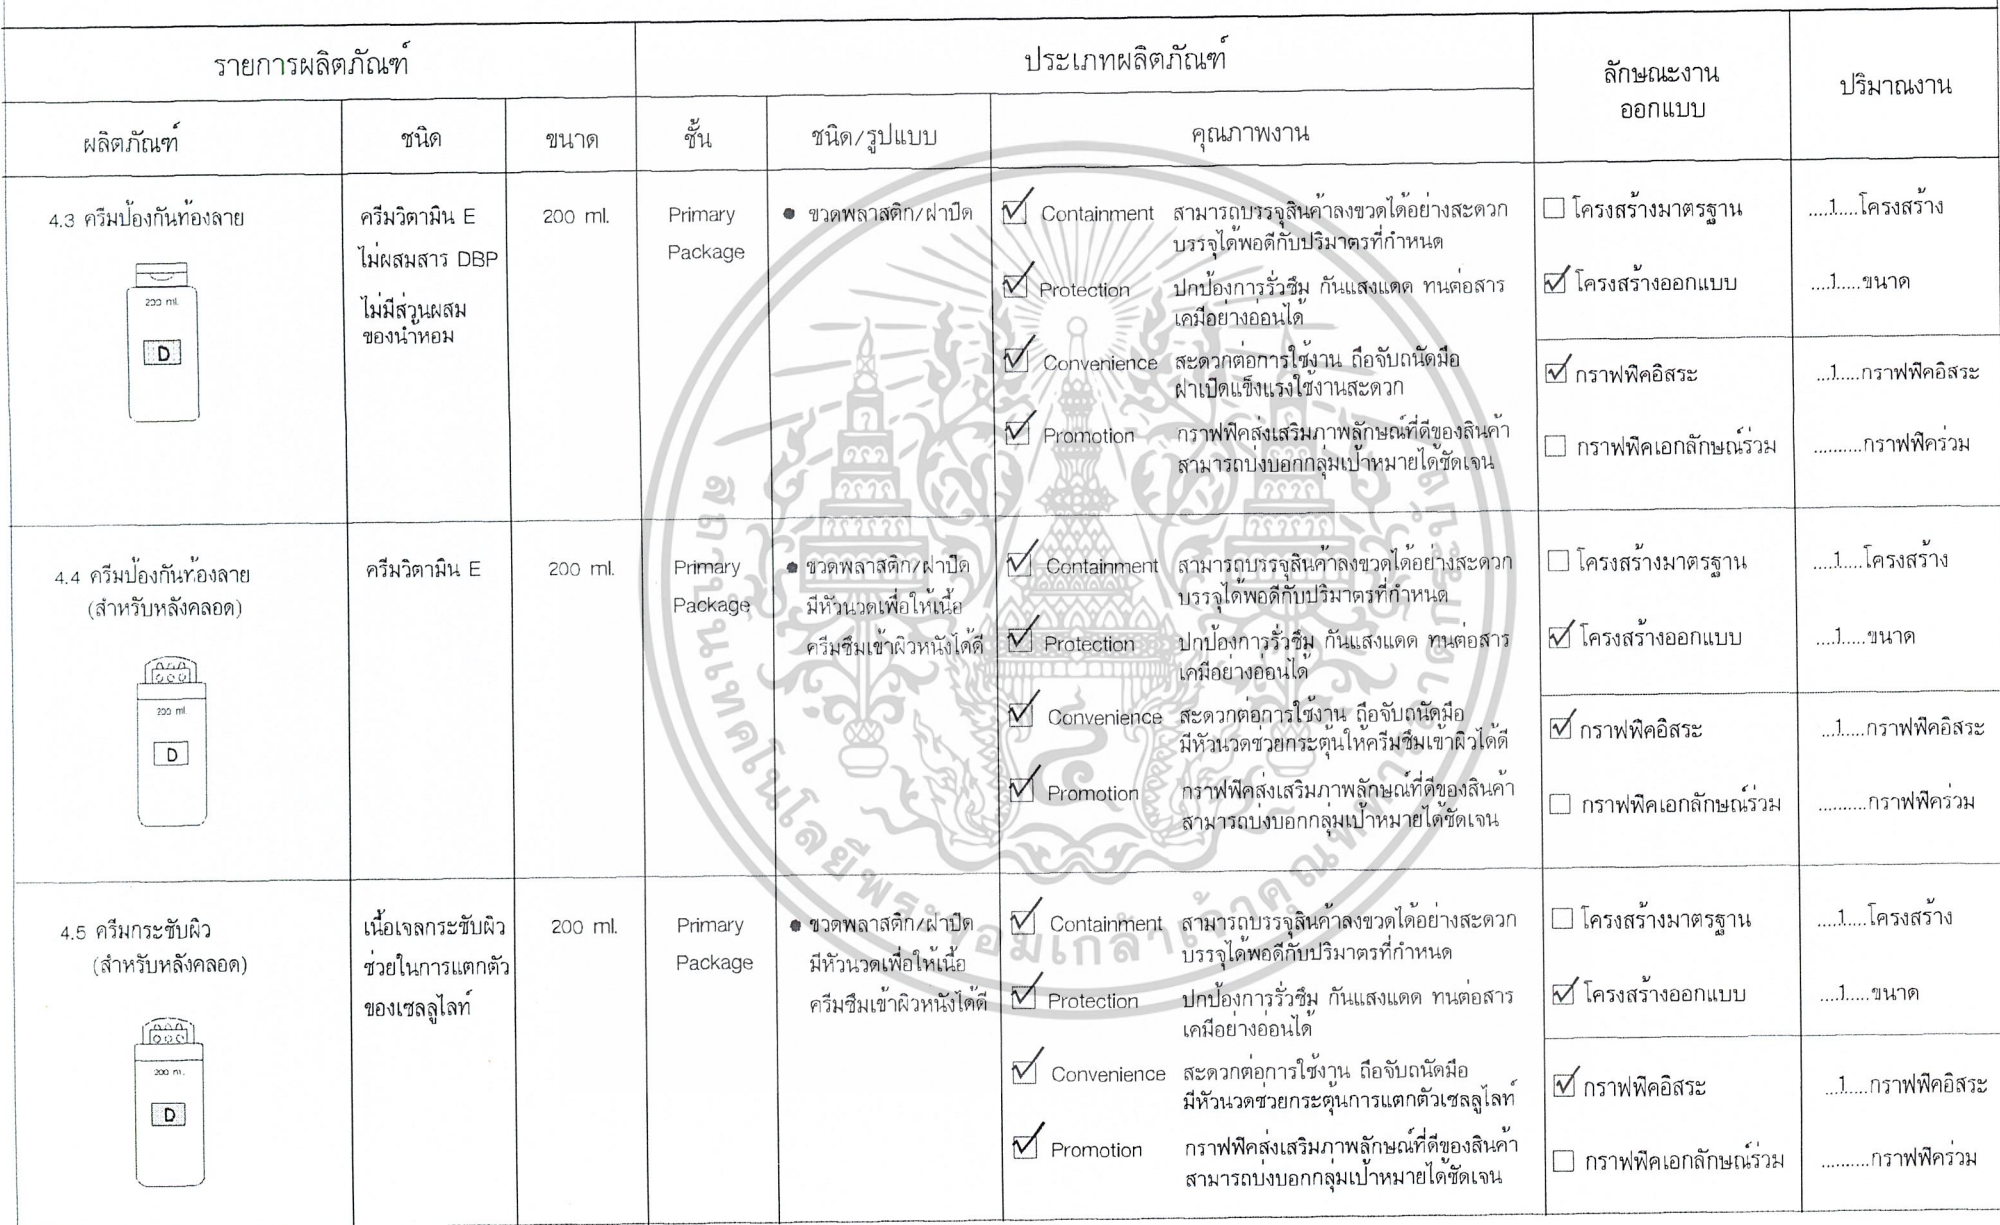 รายการผลิตภัณฑ์
ประเภทผลิตภัณฑ์
ลักษณะงาน
ออกแบบ
ปริมาณงาน
ผลิตภัณฑ์
ชนิด
ขนาด
ชั้น
ชนิด/รูปแบบ
คุณภาพงาน
4.3 ครีมป้องกันท้องลาย
200 ml.
D
ครีมวิตามิน E
ไม่ผสมสาร DBP
ไม่มีส่วนผสม
ของน้ำหอม
200 ml.
Primary
Package
● ขวดพลาสติก/ฝาปิด
☑ Containment สามารถบรรจุสินค้าลงขวดได้อย่างสะดวก
บรรจุได้พอดีกับปริมาตรที่กำหนด
☑ Protection ปกป้องการรั่วซึม กันแสงแดด ทนต่อสาร
เคมีอย่างอ่อนได้
☑ Convenience สะดวกต่อการใช้งาน ถือจับถนัดมือ
ฝาเปิดแข็งแรงใช้งานสะดวก
☑ Promotion กราฟฟิคส่งเสริมภาพลักษณ์ที่ดีของสินค้า
สามารถบ่งบอกกลุ่มเป้าหมายได้ชัดเจน
☐ โครงสร้างมาตรฐาน
☑ โครงสร้างออกแบบ
☑ กราฟฟิคอิสระ
☐ กราฟฟิคเอกลักษณ์ร่วม
.....1.....โครงสร้าง
....1.....ขนาด
...1.....กราฟฟิคอิสระ
..........กราฟฟิคร่วม
4.4 ครีมป้องกันท้องลาย
(สำหรับหลังคลอด)
200 ml.
D
ครีมวิตามิน E
200 ml.
Primary
Package
● ขวดพลาสติก/ฝาปิด
มีหัวนวดเพื่อให้เนื้อ
ครีมซึมเข้าผิวหนังได้ดี
☑ Containment สามารถบรรจุสินค้าลงขวดได้อย่างสะดวก
บรรจุได้พอดีกับปริมาตรที่กำหนด
☑ Protection ปกป้องการรั่วซึม กันแสงแดด ทนต่อสาร
เคมีอย่างอ่อนได้
☑ Convenience สะดวกต่อการใช้งาน ถือจับถนัดมือ
มีหัวนวดช่วยกระตุ้นให้ครีมซึมเข้าผิวได้ดี
☑ Promotion กราฟฟิคส่งเสริมภาพลักษณ์ที่ดีของสินค้า
สามารถบ่งบอกกลุ่มเป้าหมายได้ชัดเจน
☐ โครงสร้างมาตรฐาน
☑ โครงสร้างออกแบบ
☑ กราฟฟิคอิสระ
☐ กราฟฟิคเอกลักษณ์ร่วม
....1.....โครงสร้าง
....1.....ขนาด
...1.....กราฟฟิคอิสระ
..........กราฟฟิคร่วม
4.5 ครีมกระชับผิว
(สำหรับหลังคลอด)
200 ml.
D
เนื้อเจลกระชับผิว
ช่วยในการแตกตัว
ของเซลลูไลท์
200 ml.
Primary
Package
● ขวดพลาสติก/ฝาปิด
มีหัวนวดเพื่อให้เนื้อ
ครีมซึมเข้าผิวหนังได้ดี
☑ Containment สามารถบรรจุสินค้าลงขวดได้อย่างสะดวก
บรรจุได้พอดีกับปริมาตรที่กำหนด
☑ Protection ปกป้องการรั่วซึม กันแสงแดด ทนต่อสาร
เคมีอย่างอ่อนได้
☑ Convenience สะดวกต่อการใช้งาน ถือจับถนัดมือ
มีหัวนวดช่วยกระตุ้นการแตกตัวเซลลูไลท์
☑ Promotion กราฟฟิคส่งเสริมภาพลักษณ์ที่ดีของสินค้า
สามารถบ่งบอกกลุ่มเป้าหมายได้ชัดเจน
☐ โครงสร้างมาตรฐาน
☑ โครงสร้างออกแบบ
☑ กราฟฟิคอิสระ
☐ กราฟฟิคเอกลักษณ์ร่วม
....1....โครงสร้าง
....1.....ขนาด
...1.....กราฟฟิคอิสระ
..........กราฟฟิคร่วม
สถาบันเทคโนโลยีพระจอมเกล้าเจ้าคุณทหารลาดกระบัง